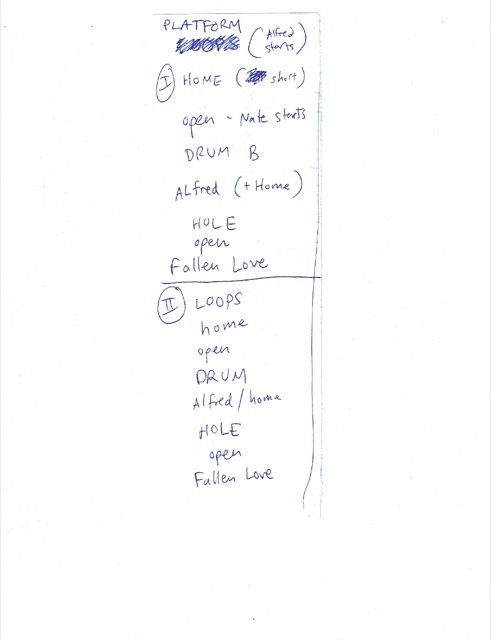 PLATFORM
(Alfred
starts)
I HOME (short)
open - Nate starts
DRUM B
ALfred (+ Home)
HOLE
open
Fallen Love
II LOOPS
home
open
DRUM
Alfred/home
HOLE
open
Fallen Love